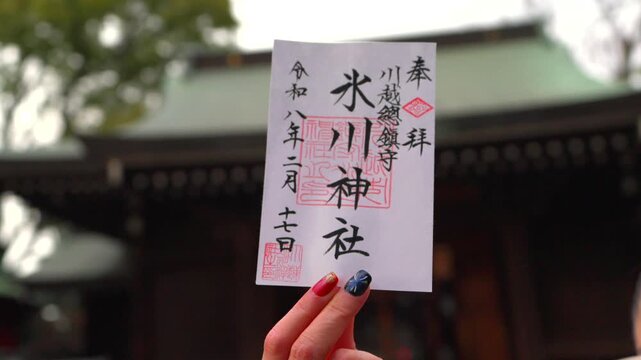 奉拝
川越總鎮守
氷川神社
令和八年二月十七日